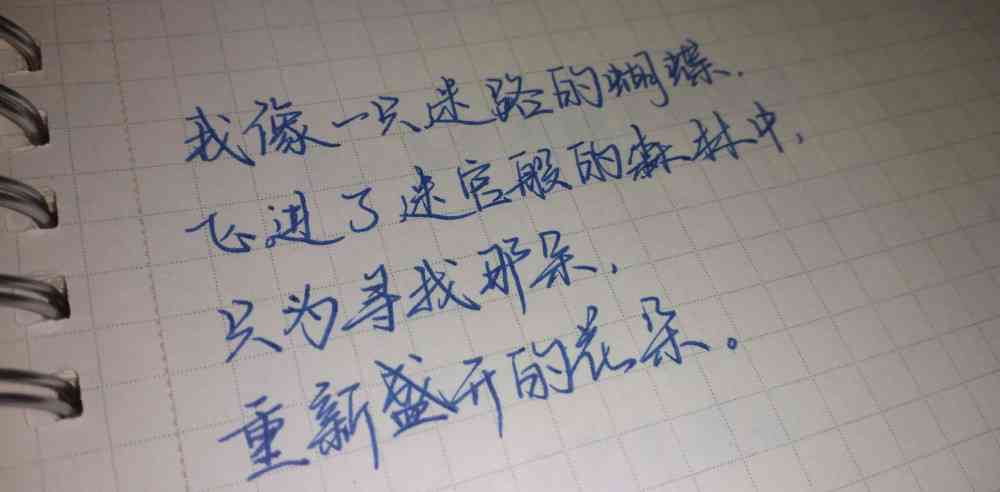 我像一只迷路的蝴蝶，
飞进了迷宫般的森林中，
只为寻找那朵，
重新盛开的花朵。